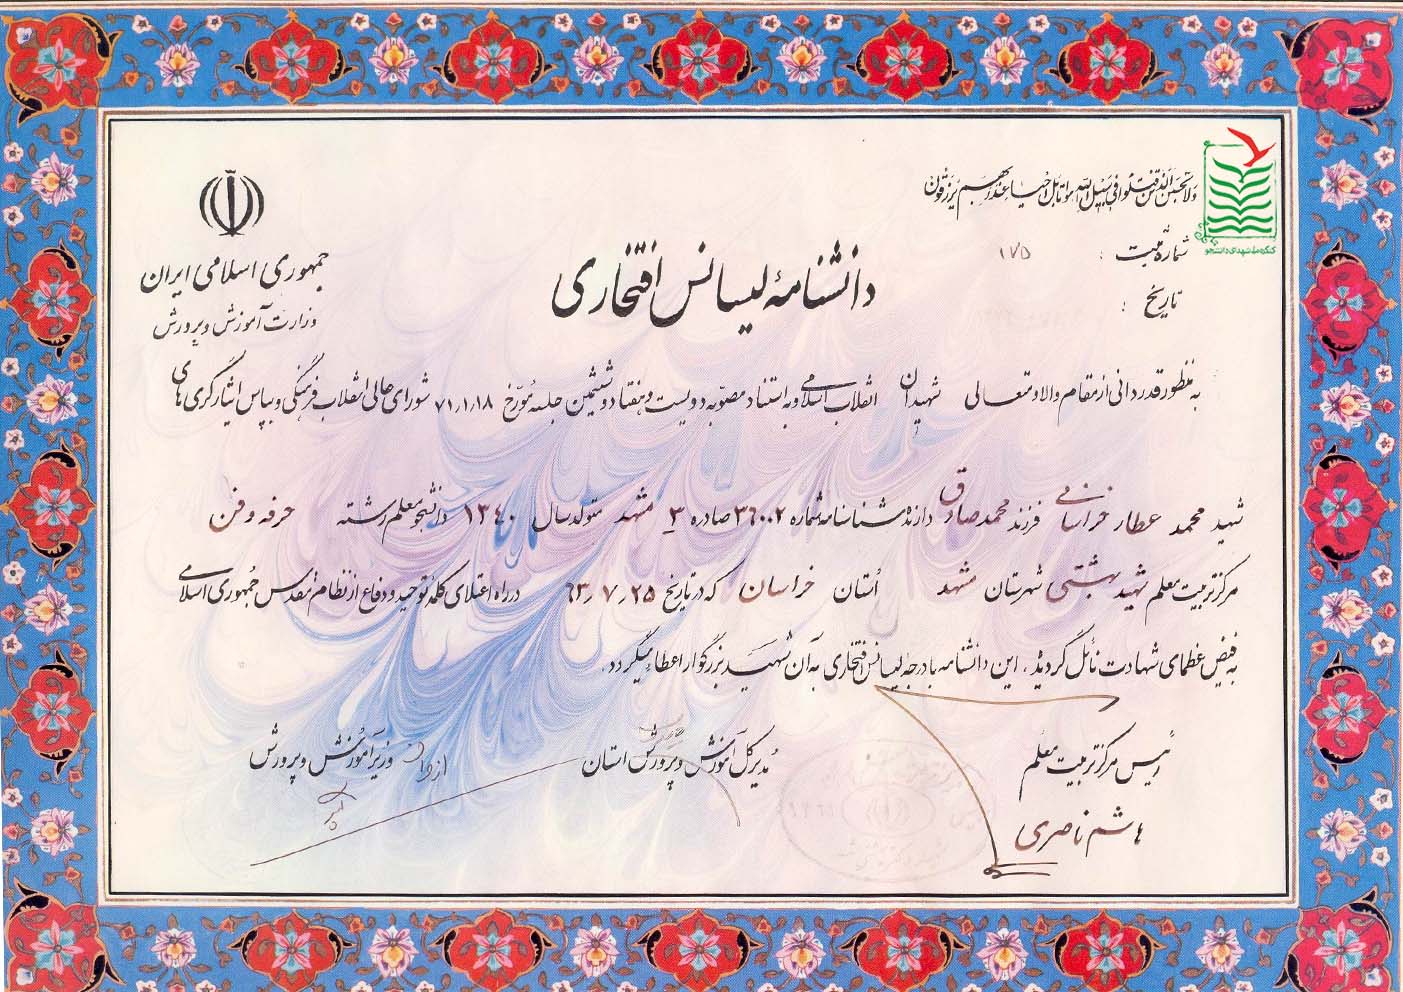 ولا تحسبن الذین قتلوا فی سبیل الله امواتا بل احیاء عند ربهم یرزقون
کنگره ملی شهدای دانشجو
شماره ثبت : ۱۷۵
تاریخ :
جمهوری اسلامی ایران
وزارت آموزش و پرورش
دانشنامهٔ لیسانس افتخاری
به منظور قدردانی از مقام والا و متعالی شهیدان انقلاب اسلامی و به استناد مصوبه دویست و هفتاد و ششمین جلسه مورّخ ۷۱٫۱٫۱۸ شورای عالی انقلاب فرهنگی و بپاس ایثارگری های
شهید محمد عطار خراسانی فرزند محمد صادق دارنده شناسنامه شماره ۳۶۰۰۲ صادره ۳ مشهد متولد سال ۱۳۴۰ دانشجو معلم رشته حرفه و فن
مرکز تربیت معلم شهید بهشتی شهرستان مشهد اُستان خراسان که در تاریخ ۶۳٫۷٫۲۵ در راه اعتلای کلمه توحید و دفاع از نظام مقدس جمهوری اسلامی
به فیض عظمای شهادت نائل گردید، این دانشنامه با درجه لیسانس افتخاری به آن شهید بزرگوار اعطاء میگردد.
رئیس مرکز تربیت معلم
مدیر کل آموزش و پرورش استان
وزیر آموزش و پرورش
هاشم ناصری